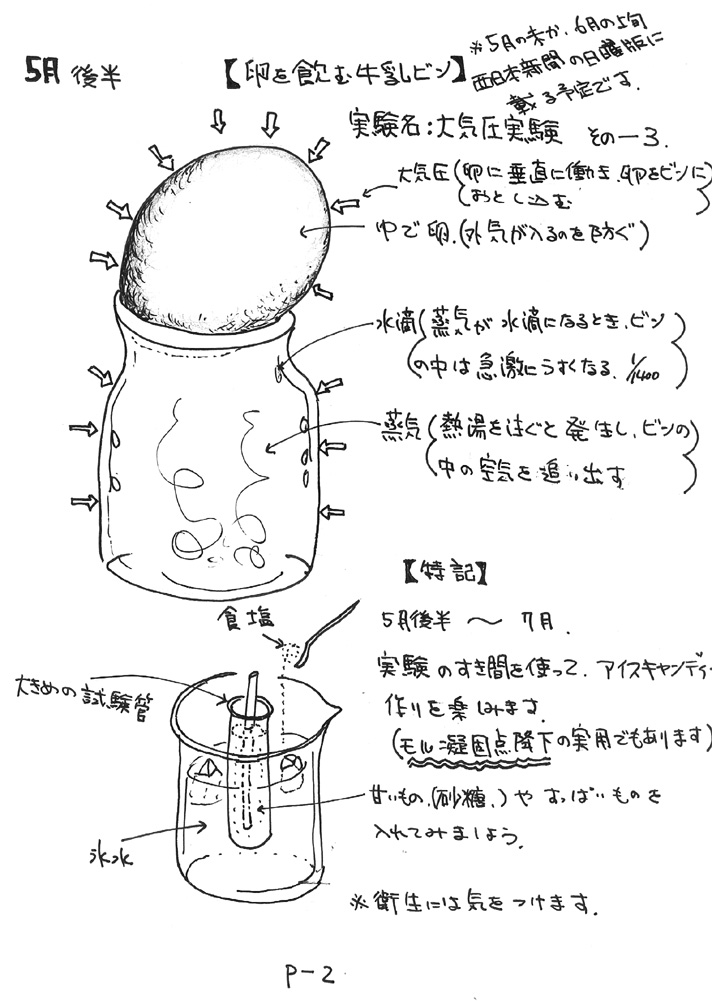 5月 後半
【卵を飲む牛乳ビン】
※5月の末か、6月の上旬
西日本新聞の日曜版に
載る予定です.
実験名:大気圧実験 その-3.
大気圧(卵に垂直に働き、卵をビンに
おとし込む)
ゆで卵.(外気が入るのを防ぐ)
水滴(蒸気が水滴になるとき、ビン
の中は急激にうすくなる. 1/1400)
蒸気(熱湯を注ぐと発生し、ビンの
中の空気を追い出す)
【特記】
5月後半 〜 7月.
実験のすき間を使って、アイスキャンディー
作りを楽しみます.
(モル凝固点降下の実用でもあります)
食塩
大きめの試験管
甘いもの.(砂糖.)や すっぱいものを
入れてみましょう.
氷水
※衛生には気をつけます.
P-2